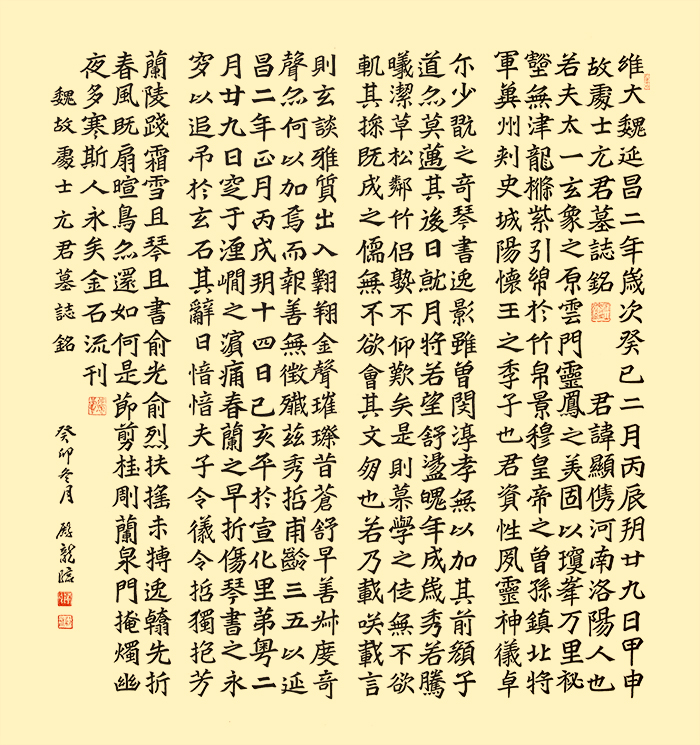 維大魏延昌二年歲次癸巳二月丙辰朔廿九日甲申
故處士元君墓誌銘 君諱顯儁河南洛陽人也
若夫太一玄象之原雲門靈鳳之美固以瓊峯万里祕
壑無津龍樤紫引綿於竹帛景穆皇帝之曾孫鎮北將
軍冀州刾史城陽懷王之季子也君資性夙靈神儀卓
尒少翫之奇琴書逸影雖曾閔淳孝無以加其前顏子
道亦莫邁其後日就月將若望舒盪魄年成歲秀若騰
曦潔草松鄰竹侶孰不仰歎矣是則慕學之徒無不欲
軌其操既成之儒無不欲會其文匆也若乃載咲載言
則玄談雅質出入翱翔金聲璀璨昔蒼舒早善叔度奇
聲亦何以加焉而報善無徵殲茲秀哲甫齡三五以延
昌二年正月丙戌朔十四日己亥卒於宣化里第粵二
月廿九日窆于瀍澗之濱痛春蘭之早折傷琴書之永
穸以追弔於玄石其辭曰愔愔夫子令儀令哲獨抱芳
蘭陵踐霜雪且琴且書俞光俞烈扶搖未摶逸翰先折
春風既扇暄鳥亦還如何是節剪桂剛蘭泉門掩燭幽
夜多寒斯人永矣金石流刊
魏故處士元君墓誌銘 癸卯冬月